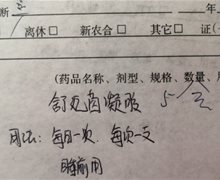 断
年
离休□ 新农合□ 其它□ 证(
(药品名称、剂型、规格、数量、用
凝胶 5支
用法:每日一次,每次一支
睡前用